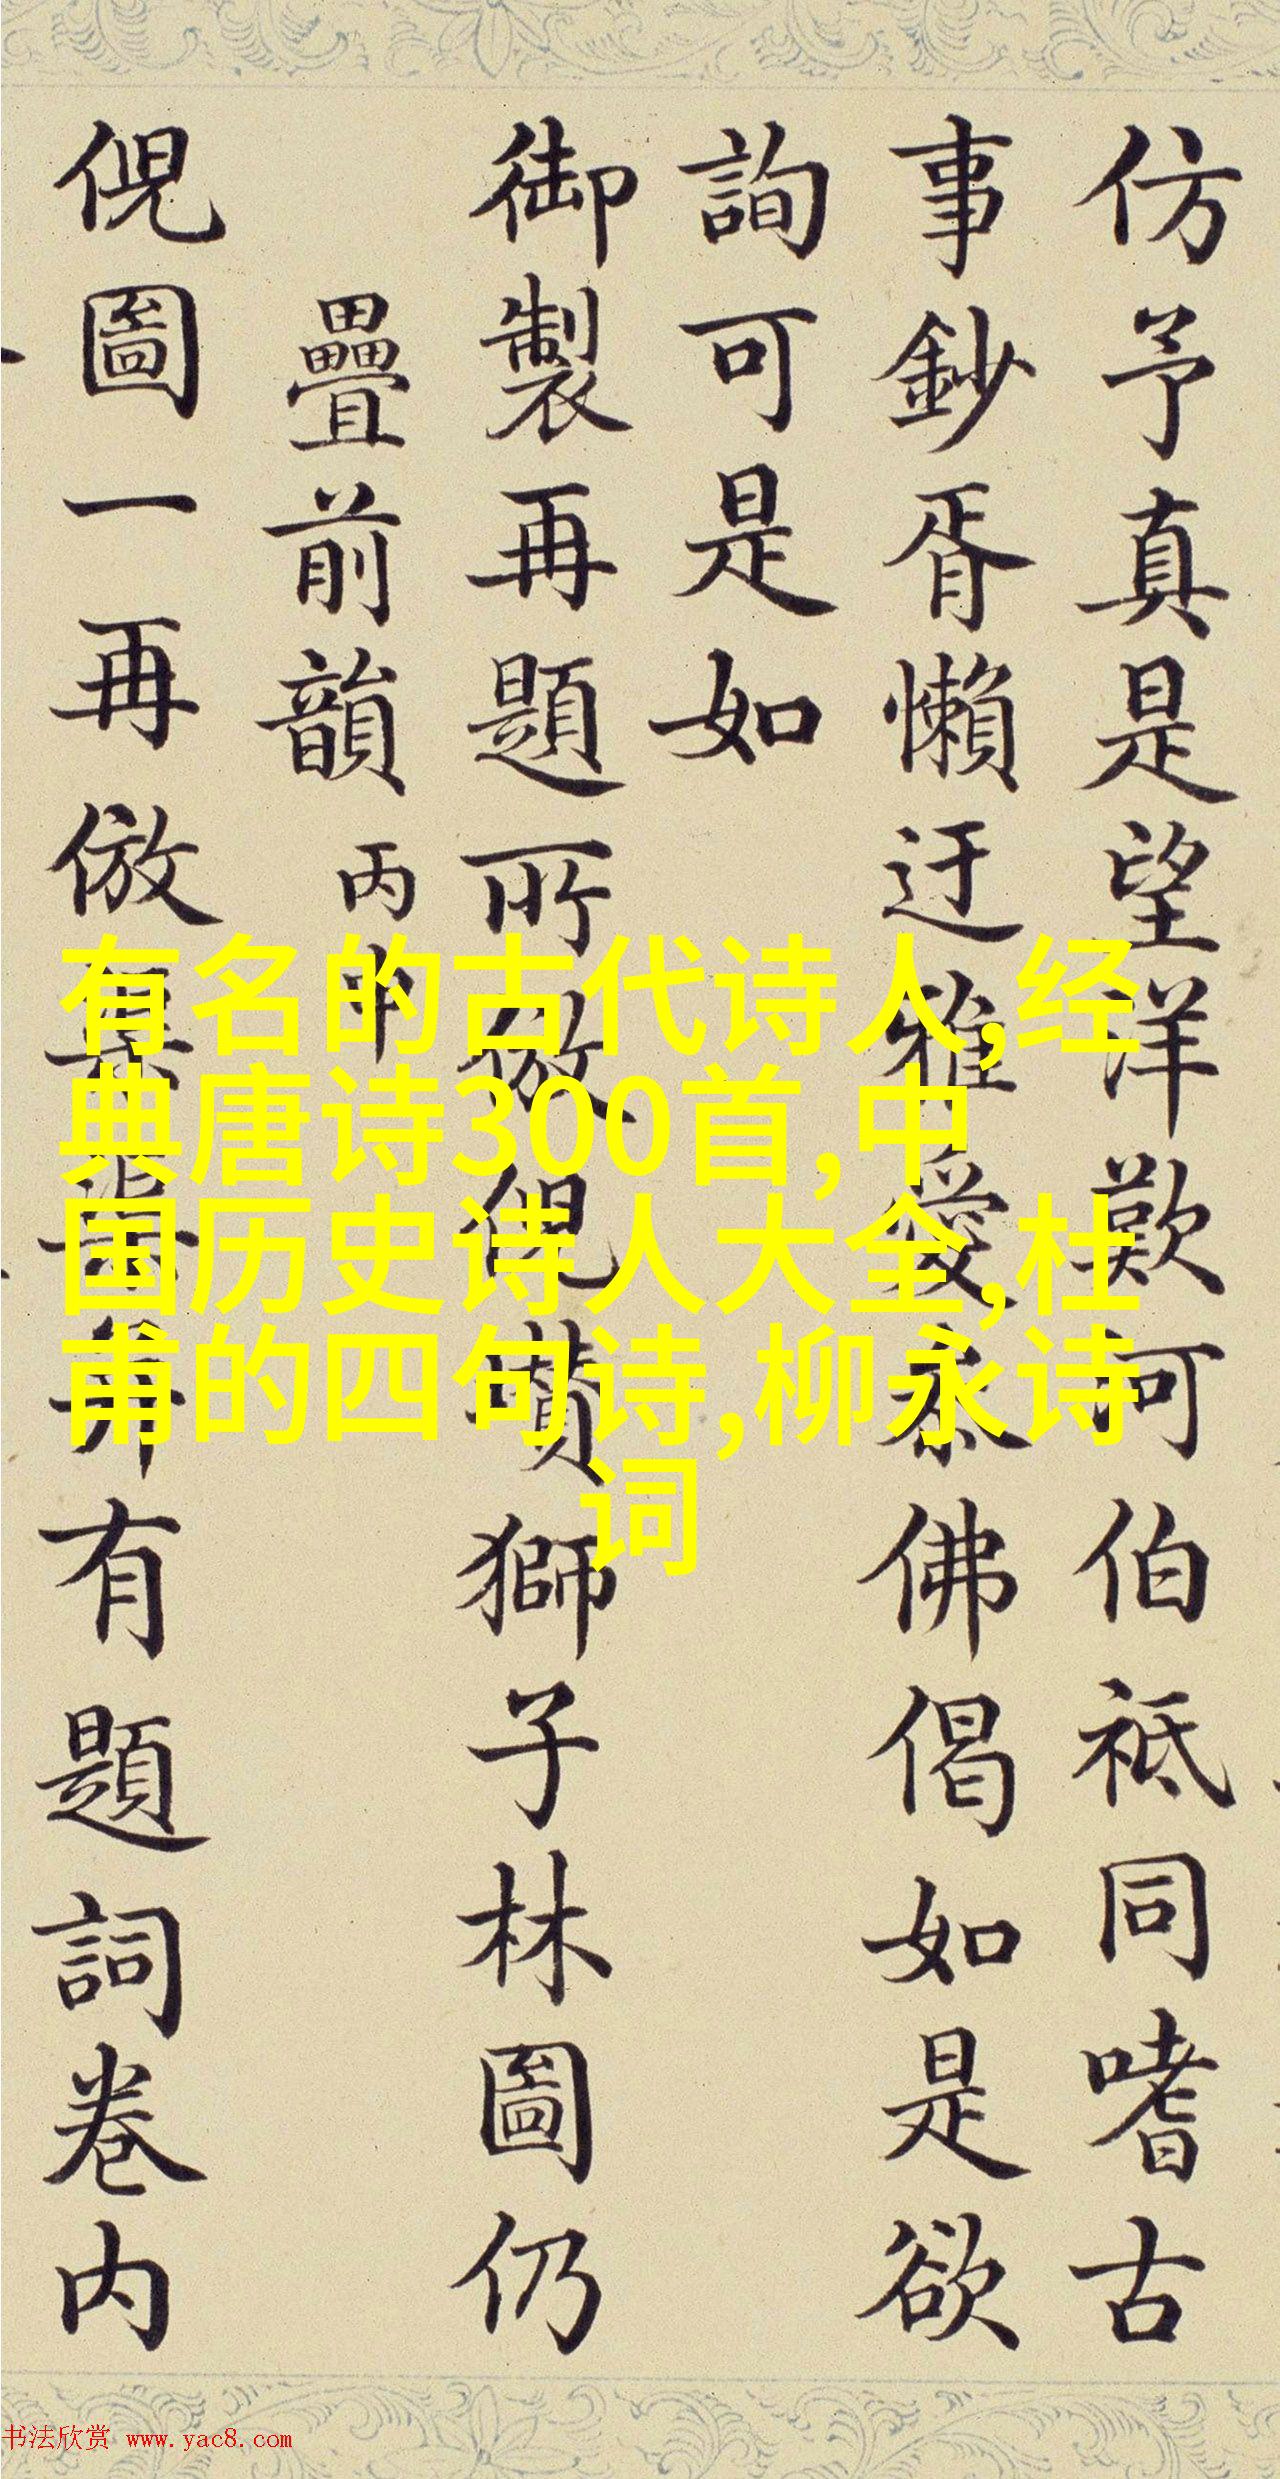 仿予真是望洋歎河伯祗同嗜古
事鈔胥懶迂雅愛佛偈如是欲
詢可是如
御製再題所倣倪瓚獅子林圖仍
疊前韻丙申
倪圖一再倣有題詞卷内
有名的古代诗人,经
典唐诗300首,中
国历史诗人大全,杜
甫的四句诗,柳永诗
词
书法欣赏 www.yac8.com